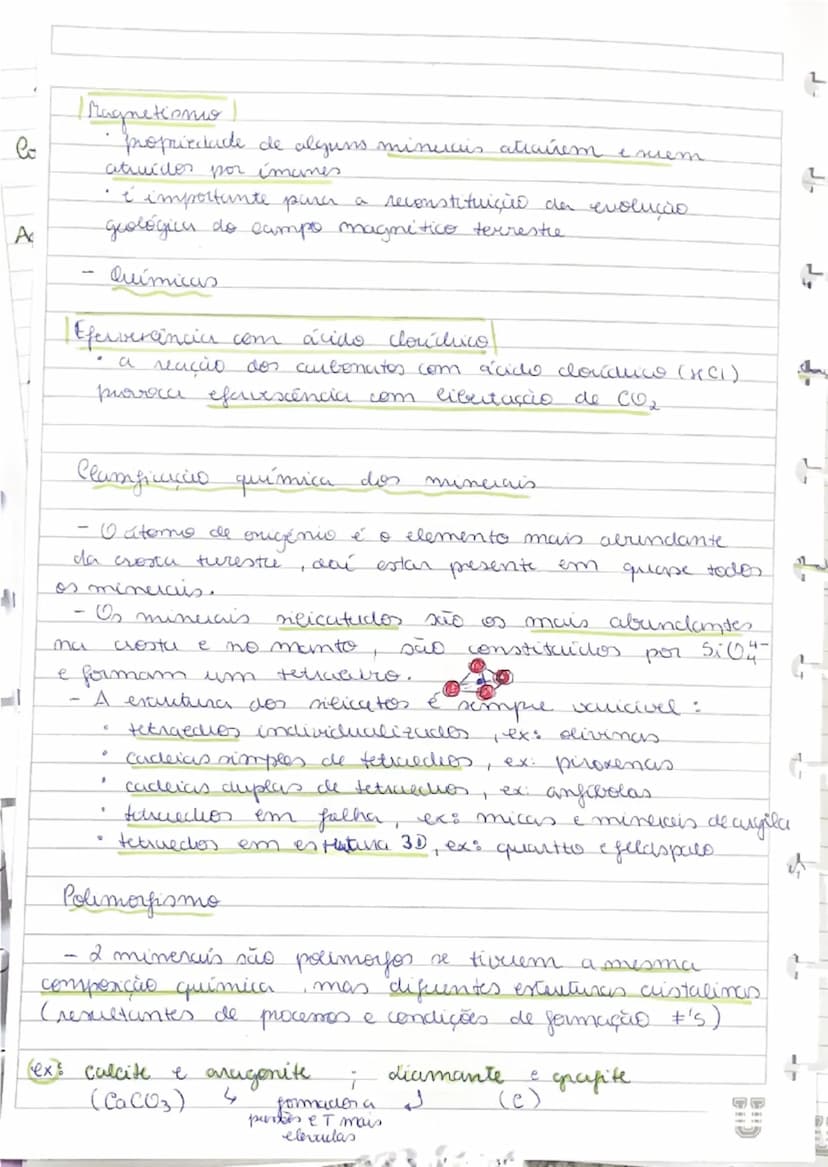 Magnetismo
· propriedade de alguns minerais atraírem e serem
atraídos por ímanes
· é importante para a reconstituição da evolução
geológica do campo magnético terrestre
- Químicas
Efervescência com ácido clorídrico
· a reação dos carbonatos com ácido clorídrico (HCl)
provoca efervescência com libertação de CO2
Classificação química dos minerais
- O átomo de oxigénio é o elemento mais abundante
da crosta terrestre, daí estar presente em quase todos
os minerais.
- Os minerais silicatados são os mais abundantes
na crosta e no manto, são constituídos por SiO4 4-
e formam um tetraedro.
- A estrutura dos silicatos é sempre variável:
· tetraedros individualizados, ex: olivinas
· cadeias simples de tetraedros, ex: piroxenas
· cadeias duplas de tetraedros, ex: anfíbolas
· tetraedros em folha, ex: micas e minerais de argila
· tetraedros em estrutura 3D, ex: quartzo e feldspato
Polimorfismo
- 2 minerais são polimorfos se tiverem a mesma
composição química, mas diferentes estruturas cristalinas
(resultantes de processos e condições de formação ≠'s)
ex: calcite e aragonite ; diamante e grafite
(CaCO3) ↳ formados a ↲ (C)
pressões e T mais
elevadas
Co
A